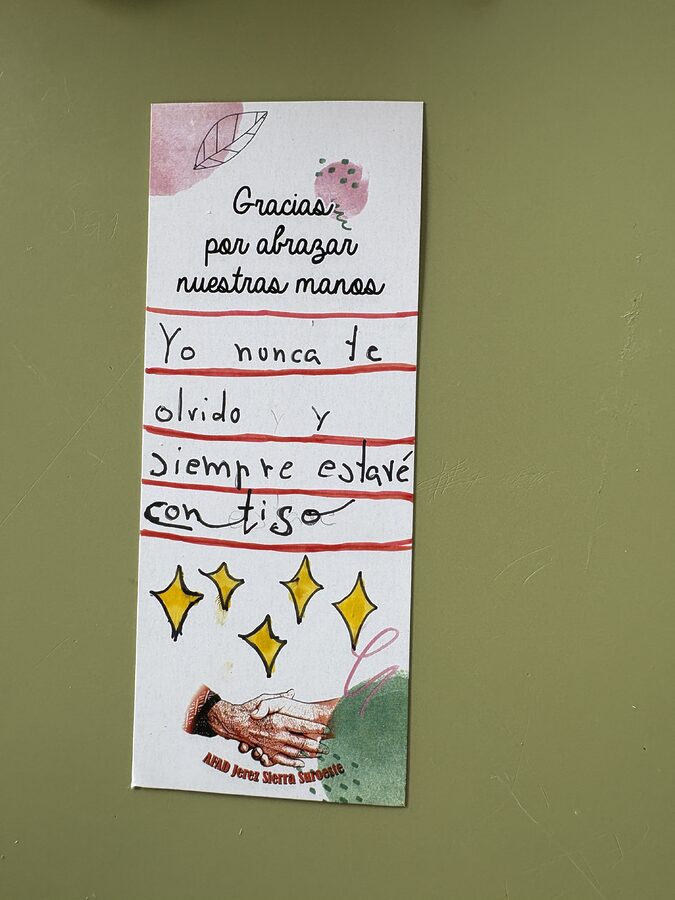 Gracias
por abrazar
nuestras manos
Yo nunca te
olvido y
siempre estaré
contigo
AFAD Jerez Sierra Suroeste